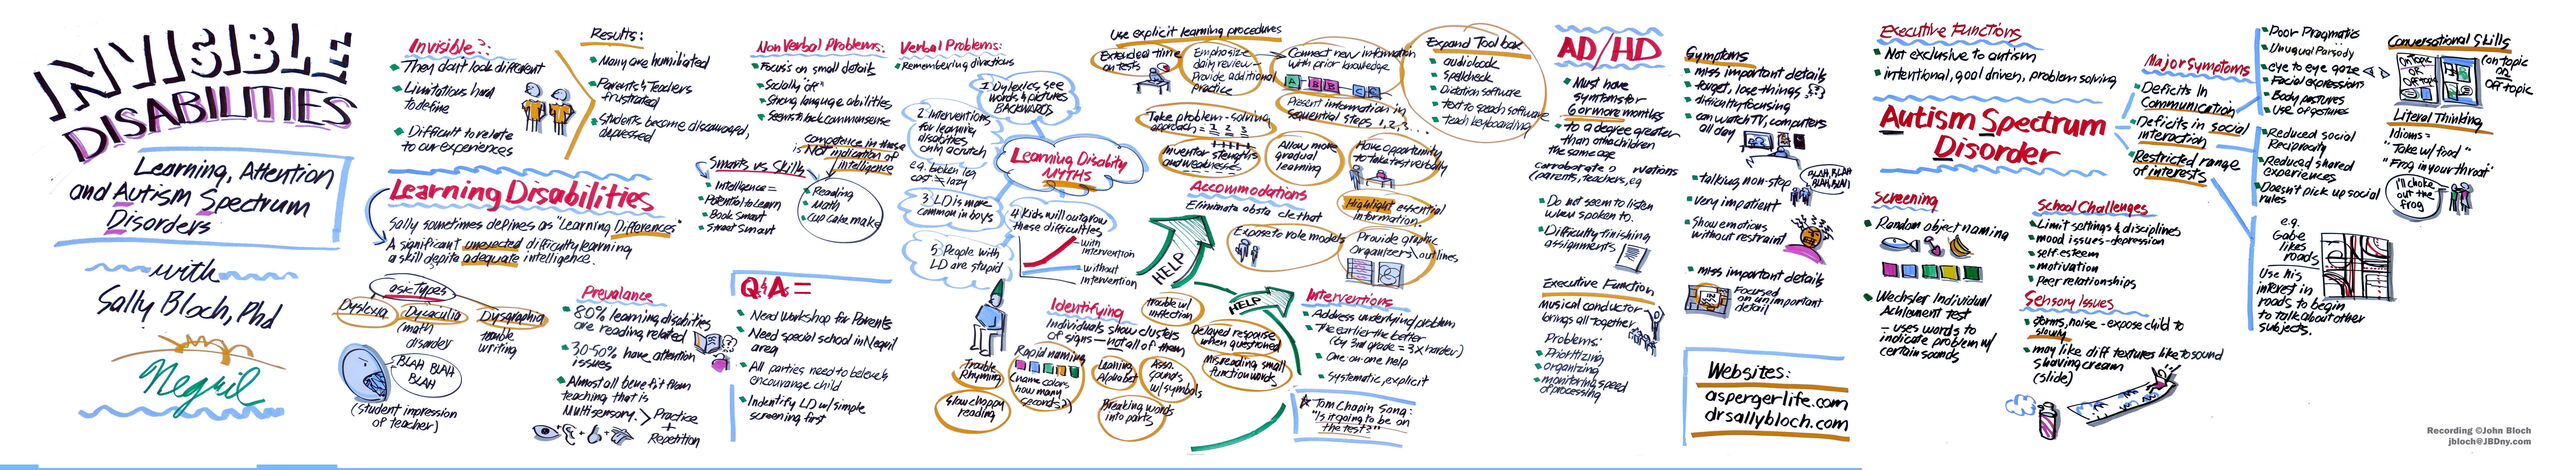 INVISIBLE
DISABILITIES
Learning, Attention
and Autism Spectrum
Disorders
with
Sally Bloch, Phd
Negril
Invisible?:
They don't look different
Limitations hard
to define
Difficult to relate
to our experiences
Results:
Many are humiliated
Parents & Teachers
frustrated
Students become discouraged,
depressed
Learning Disabilities
Sally sometimes defines as "Learning Differences"
A significant unexpected difficulty learning
a skill depite adequate intelligence.
Types
Dyslexia
Dyscaculia
(math
disorder
Dysgraphia
trouble
writing
BLAH BLAH
BLAH
(student impression
of teacher)
Prevalance
80% learning disabilities
are reading related
30-50% have attention
issues
Almost all benefit from
teaching that is
Multisensory.
Practice
+
Repetition
Non Verbal Problems:
Focus on small details
Socially "off"
Strong language abilities
Seem to lack commonsense
Smarts vs Skills
Intelligence =
Potential to Learn
Book Smart
Street Smart
competence in these
is NOT indication of
intelligence
Reading
Math
Cup cake make
Q&A =
Need Workshop for Parents
Need special school in Negril
area
All parties need to believe &
encourange child
Indentify LD w/ simple
screening first
Verbal Problems:
Remembering directions
Learning Disabity
MYTHS
1. Dylexics see
words & pictures
BACKWARDS
2. Interventions
for learning
disabilities
only a crutch
e.g. broken leg
cast = lazy
3. LD is more
common in boys
4. Kids will outgrow
these difficulties
with
intervention
without
intervention
5. People with
LD are stupid
HELP
Use explicit learning procedures
Extended time
on tests
Emphasize
daily review -
Provide additional
practice
Connect new information
with prior knowledge
A B C
Present information in
sequential steps 1, 2, 3...
Take problem-solving
approach = 1 2 3
Inventor strengths
and weaknesses
Allow more
gradual
learning
Have opportunity
to take test verbally
Expand Toolbox
audiobook
spellcheck
Dictation software
text to speach software
teach keyboarding
Accommodations
Eliminate obstacle that
Highlight essential
information.
Expose to role models
Provide graphic
Organizers/outlines
HELP
Identifying
Individuals show clusters
of signs—not all of them
trouble w/
inflection
Delayed response
when questioned
Trouble
Rhyming
Rapid naming
(name colors
how many
seconds?)
Learning
Alphabet
Asso.
sounds
w/symbols
Misreading small
function words
Slow choppy
reading
Breaking words
into parts
Interventions
Address underlying problem
The earlier the better
(by 3rd grade = 3x harder)
One-on-one help
Systematic, explicit
Tom Chapin Song:
"Is it going to be on
the test?"
AD/HD
Must have
symtoms for
6 or more months
to a degree greater
than other children
the same age
Do not seem to listen
when spoken to.
Difficulty finishing
assignments
Executive Function
Musical conductor
brings all together
Problems:
Prioritizing
organizing
monitoring speed
of processing
Symptoms
miss important details
forget, lose things
difficulty focusing
can watch TV, computers
all day
talking non-stop
BLAH, BLAH
BLAH, BLAH
Very impatient
Show emotions
without restraint
miss important details
Focused
on unimportant
detail
Websites:
aspergerlife.com
drsallybloch.com
Executive Functions
Not exclusive to autism
intentional, goal driven, problem solving
Autism Spectrum
Disorder
Screening
Random object naming
Wechsler Individual
Achievement test
- uses words to
indicate problem w/
certain sounds
School Challenges
Limit settings & disciplines
mood issues-depression
self-esteem
motivation
peer relationships
Sensory Issues
storms, noise - expose child to
slowly
may like diff textures like to sound
shaving cream
(slide)
Major Symptoms
Deficits In
Communication
Deficits in social
interaction
Restricted range
of interests
Poor Pragmatics
Unusual Parsody
eye to eye gaze
Facial expressions
Body postures
Use of gestures
Reduced social
Reciprocity
Reduced shared
experiences
Doesn't pick up social
rules
e.g.
Gabe
likes
roads
Use his
interest in
roads to begin
to talk about other
subjects.
Conversational Skills
(on topic
or
off topic
Literal Thinking
Idioms =
"Take w/ food"
"Frog in your throat"
I'll choke
out the
frog
Recording ©John Bloch
jbloch@JBDny.com